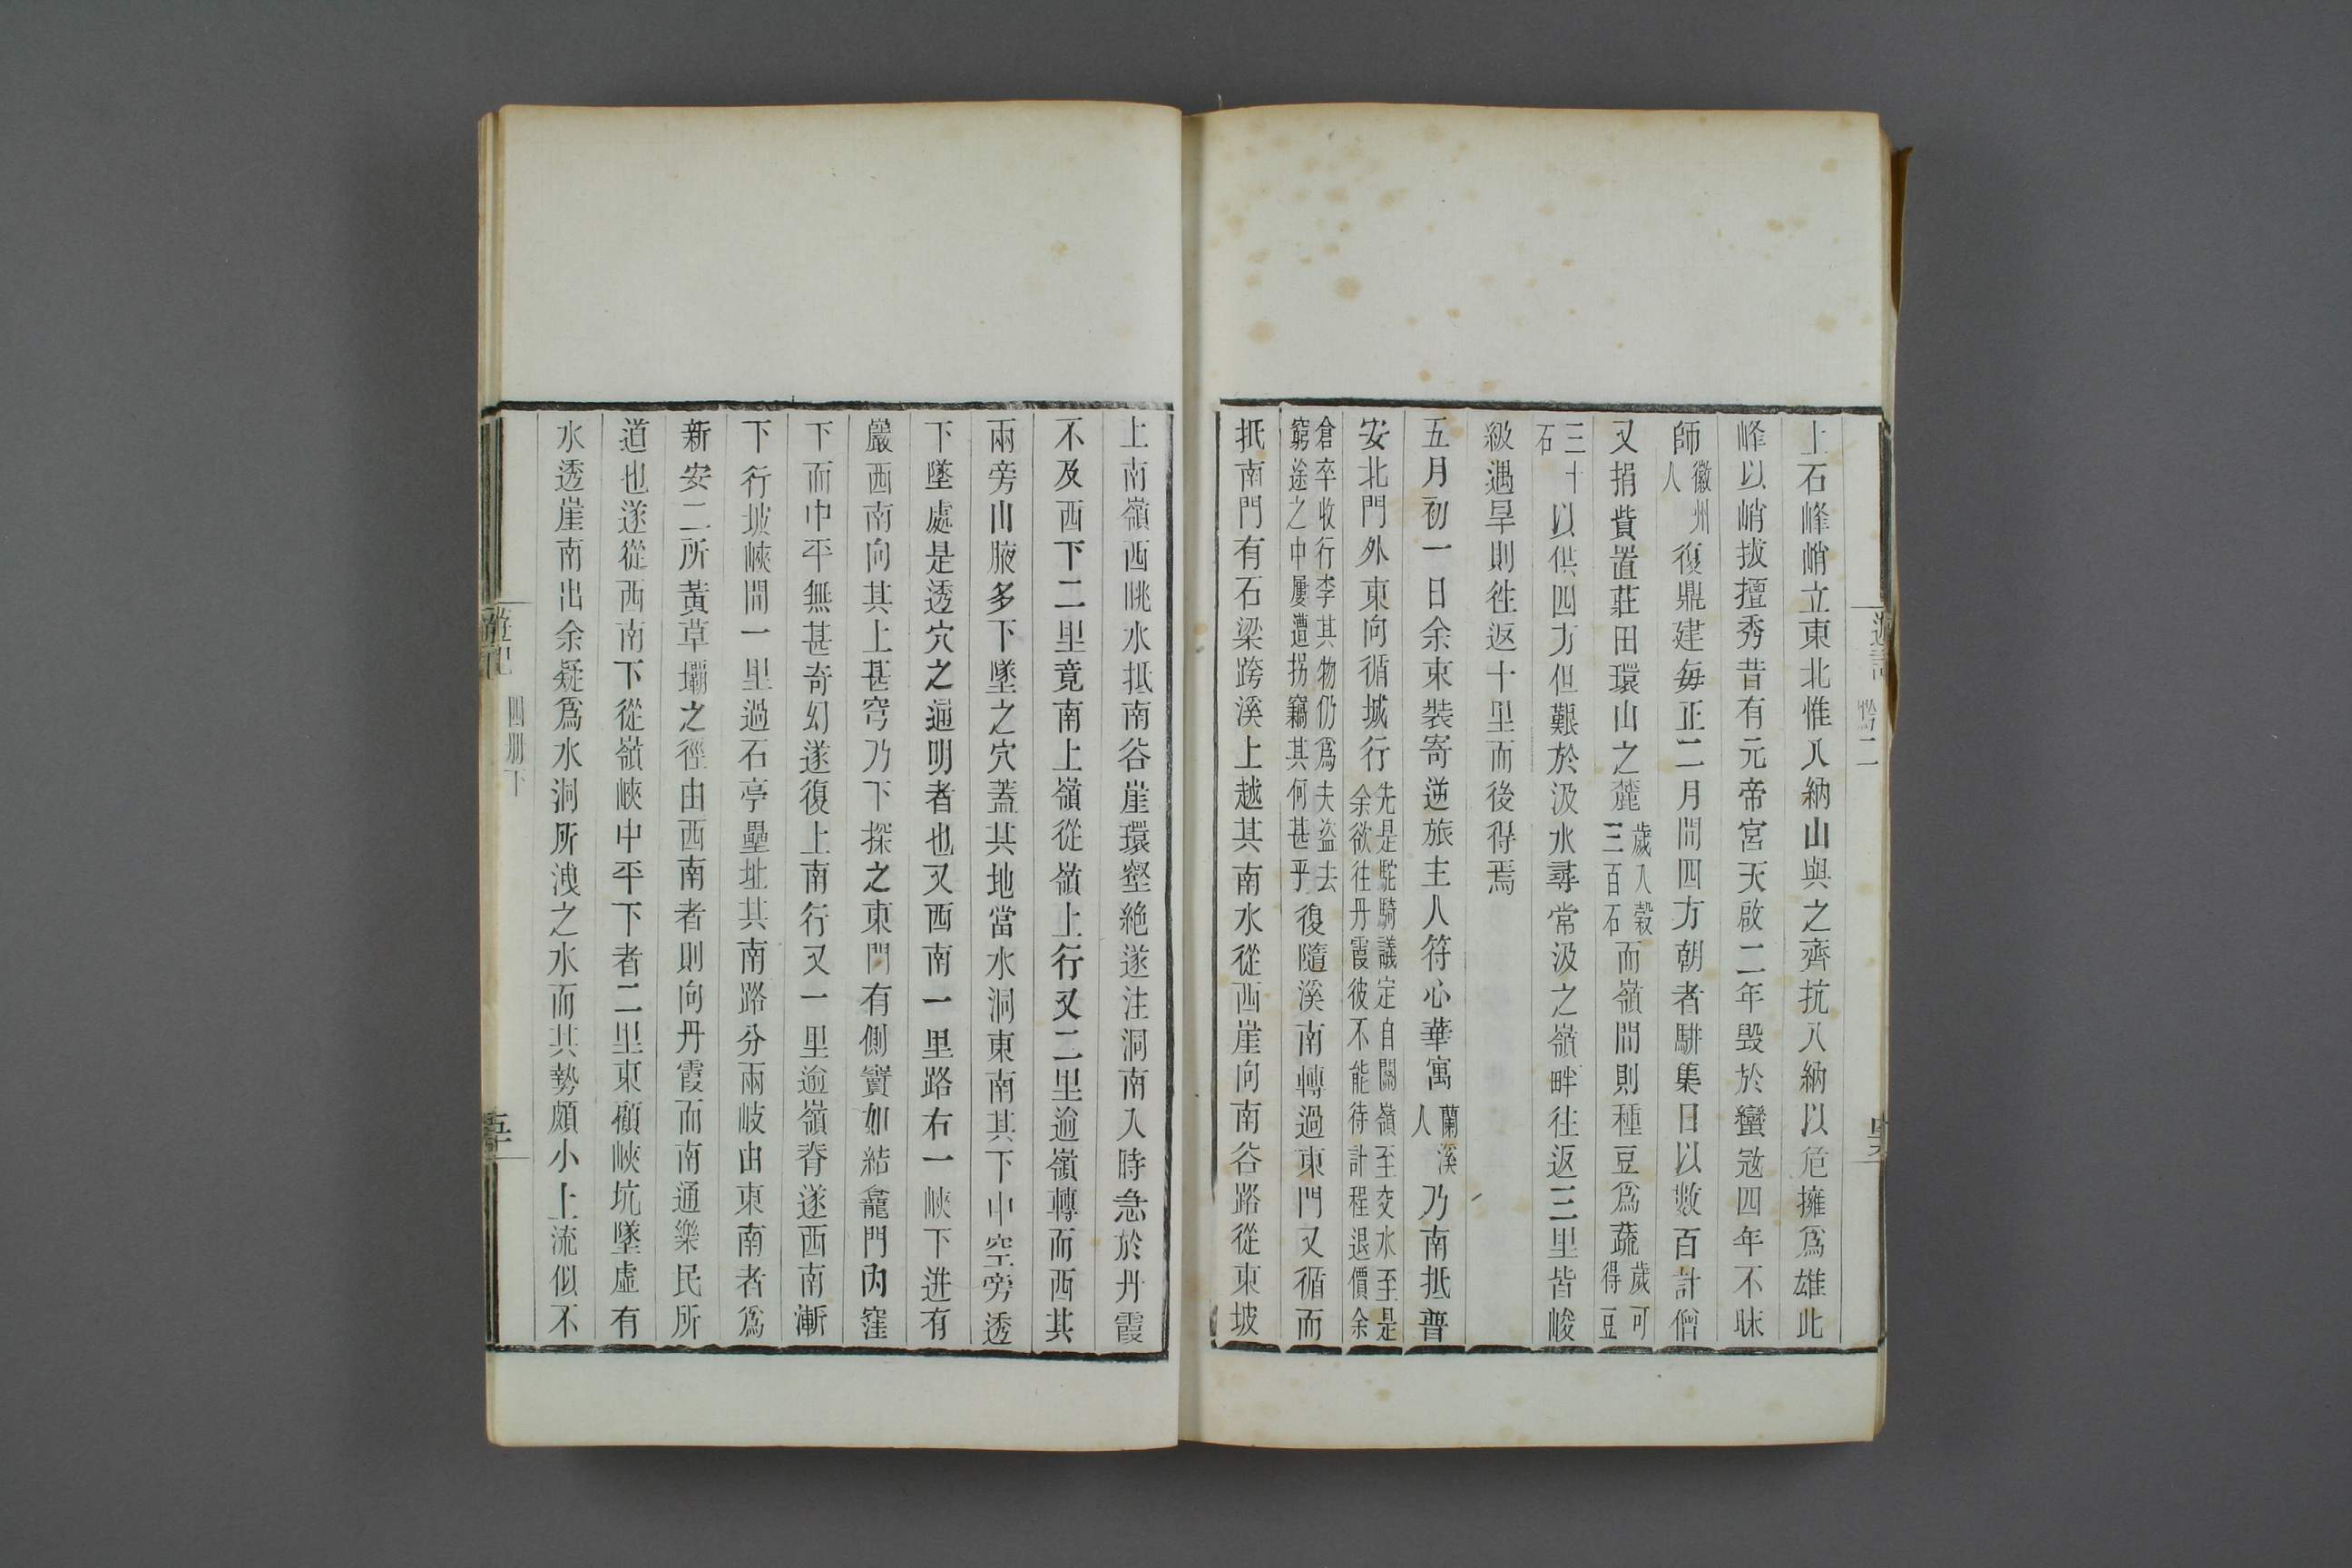 上石峰峭立東北惟八納山與之齊抗八納以危擁爲雄此
峰以峭拔擅秀昔有元帝宮天啟二年毀於蠻寇四年不昧
師徽州人復鼎建每正二月間四方朝者駢集日以數百計僧
又捐貲置莊田環山之麓歲入穀三百石而嶺間則種豆爲蔬歲可得豆
三十石以供四方但艱於汲水尋常汲之嶺畔往返三里皆峻
級遇旱則徃返十里而後得焉
五月初一日余束裝寄逆旅主人符心華寓蘭溪人乃南抵普
安北門外東向循城行先是駝騎議定自關嶺至交水至是余欲往丹霞彼不能待計程退價余
倉卒收行李其物仍爲夫盜去窮途之中屢遭拐竊其何甚乎復隨溪南轉過東門又循而
抵南門有石梁跨溪上越其南水從西崖向南谷路從東坡
上南嶺西眺水抵南谷崖環壑絕遂注洞南入時急於丹霞
不及西下二里竟南上嶺從嶺上行又二里逾嶺轉而西其
兩旁山腋多下墜之穴蓋其地當水洞東南其下中空旁透
下墜處是透穴之逼明者也又西南一里路右一峽下迸有
巖西南向其上甚穹乃下探之東門有側竇如結龕門內窪
下而中平無甚奇幻遂復上南行又一里逾嶺脊遂西南漸
下行坡峽間一里過石亭壘址其南路分兩岐由東南者爲
新安二所黃草壩之徑由西南者則向丹霞而南通樂民所
道也遂從西南下從嶺峽中平下者二里東顧峽坑墜虛有
水透崖南出余疑爲水洞所洩之水而其勢頗小上流似不
遊記 四册下